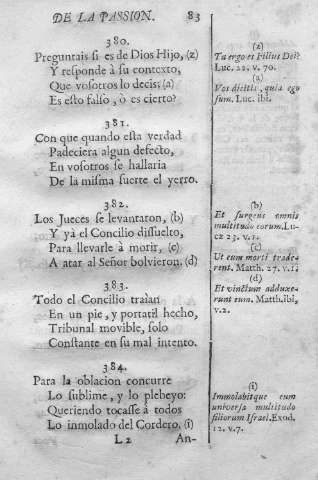 DE LA PASSION. 83
380.
Preguntais si es de Dios Hijo, (z)
Y responde à su contexto,
Que vosotros lo decis: (a)
Es esto falso, o es cierto?
381.
Con que quando esta verdad
Padeciera algun defecto,
En vosotros se hallaria
De la misma suerte el yerro.
382.
Los Jueces se levantaron, (b)
Y yà el Concilio dissuelto,
Para llevarle à morir, (c)
A atar al Señor bolvieron. (d)
383.
Todo el Concilio traìan
En un pie, y portatil hecho,
Tribunal movible, solo
Constante en su mal intento.
384.
Para la oblacion concurre
Lo sublime, y lo plebeyo:
Queriendo tocasse à todos
Lo inmolado del Cordero. (i)
L2 An-
(z)
Tu ergo es Filius Dei?
Luc. 22. v. 70.
(a)
Vos dicitis, quia ego
sum. Luc. ibi.
(b)
Et surgens omnis
multitudo eorum. Lu-
cæ 23. v. 1.
(c)
Ut eum morti trade-
rent. Matth. 27. v. 1.
(d)
Et vinctum adduxe-
runt eum. Matth. ibi,
v. 2.
(i)
Immolabitque eum
universa multitudo
filiorum Israel. Exod.
12. v. 7.